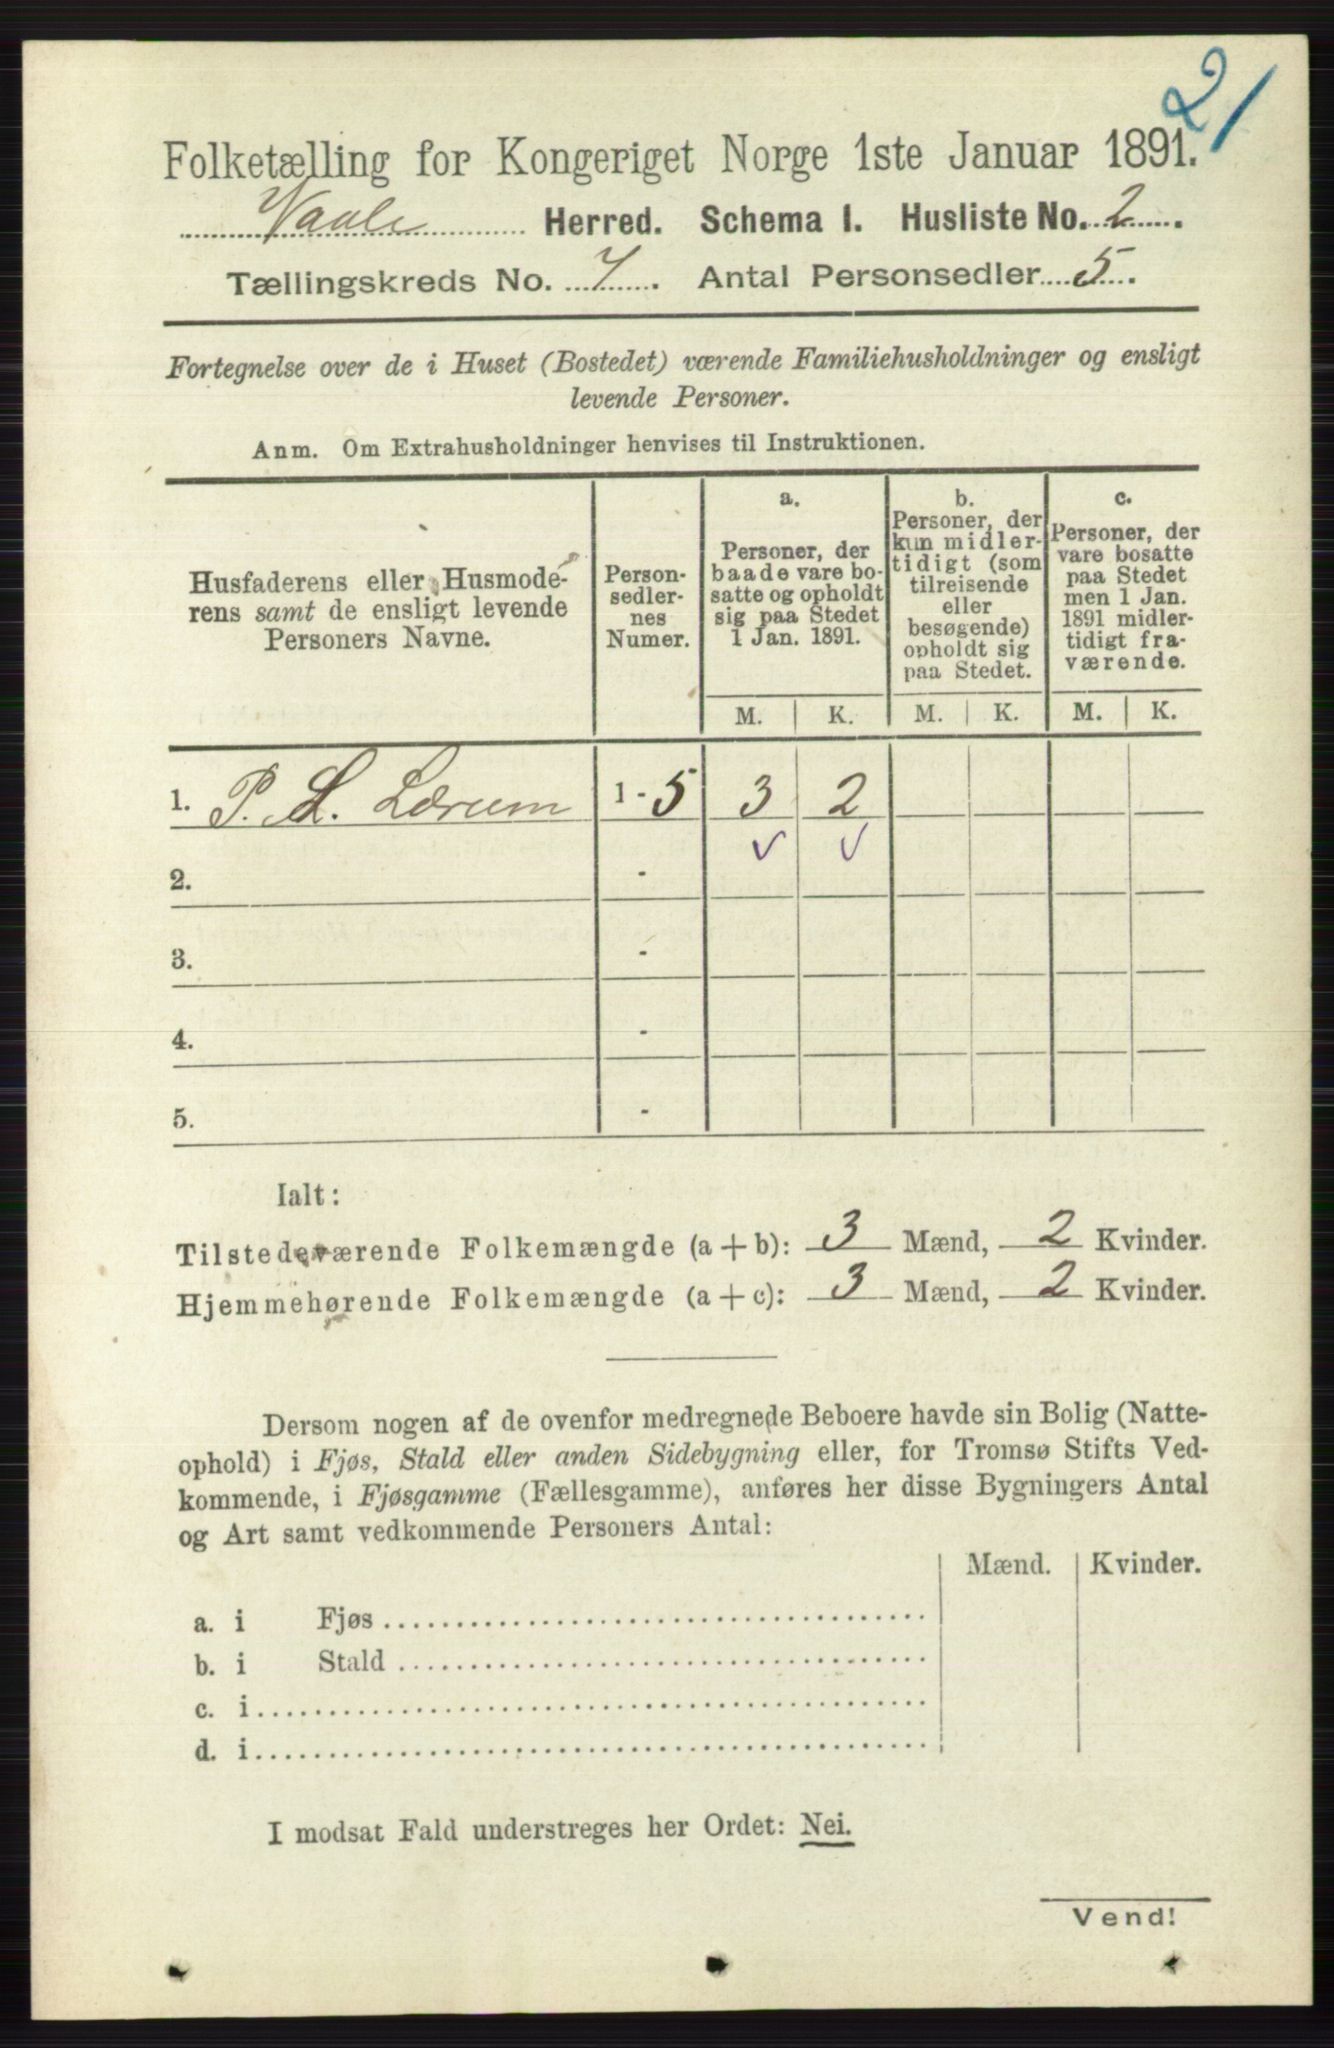 21
Folketælling for Kongeriget Norge 1ste Januar 1891.
Vaale Herred. Schema I. Husliste No. 2.
Tællingskreds No. 7. Antal Personsedler 5.
Fortegnelse over de i Huset (Bostedet) værende Familiehusholdninger og ensligt
levende Personer.
Anm. Om Extrahusholdninger henvises til Instruktionen.
Husfaderens eller Husmode-
rens samt de ensligt levende
Personers Navne.
Person-
sedler-
nes
Numer.
a.
Personer, der
baade vare bo-
satte og opholdt
sig paa Stedet
1 Jan. 1891.
b.
Personer, der
kun midler-
tidigt (som
tilreisende
eller
besøgende)
opholdt sig
paa Stedet.
c.
Personer, der
vare bosatte
paa Stedet
men 1 Jan.
1891 midler-
tidigt fra-
værende.
M. K. M. K. M. K.
1. P. L. Lærum 1 - 5 3 2
2. -
3. -
4. -
5. -
Ialt:
Tilstedeværende Folkemængde (a + b): 3 Mænd, 2 Kvinder.
Hjemmehørende Folkemængde (a + c): 3 Mænd, 2 Kvinder.
Dersom nogen af de ovenfor medregnede Beboere havde sin Bolig (Natte-
ophold) i Fjøs, Stald eller anden Sidebygning eller, for Tromsø Stifts Ved-
kommende, i Fjøsgamme (Fællesgamme), anføres her disse Bygningers Antal
og Art samt vedkommende Personers Antal:
Mænd. Kvinder.
a. i Fjøs
b. i Stald
c. i
d. i
I modsat Fald understreges her Ordet: Nei.
Vend!